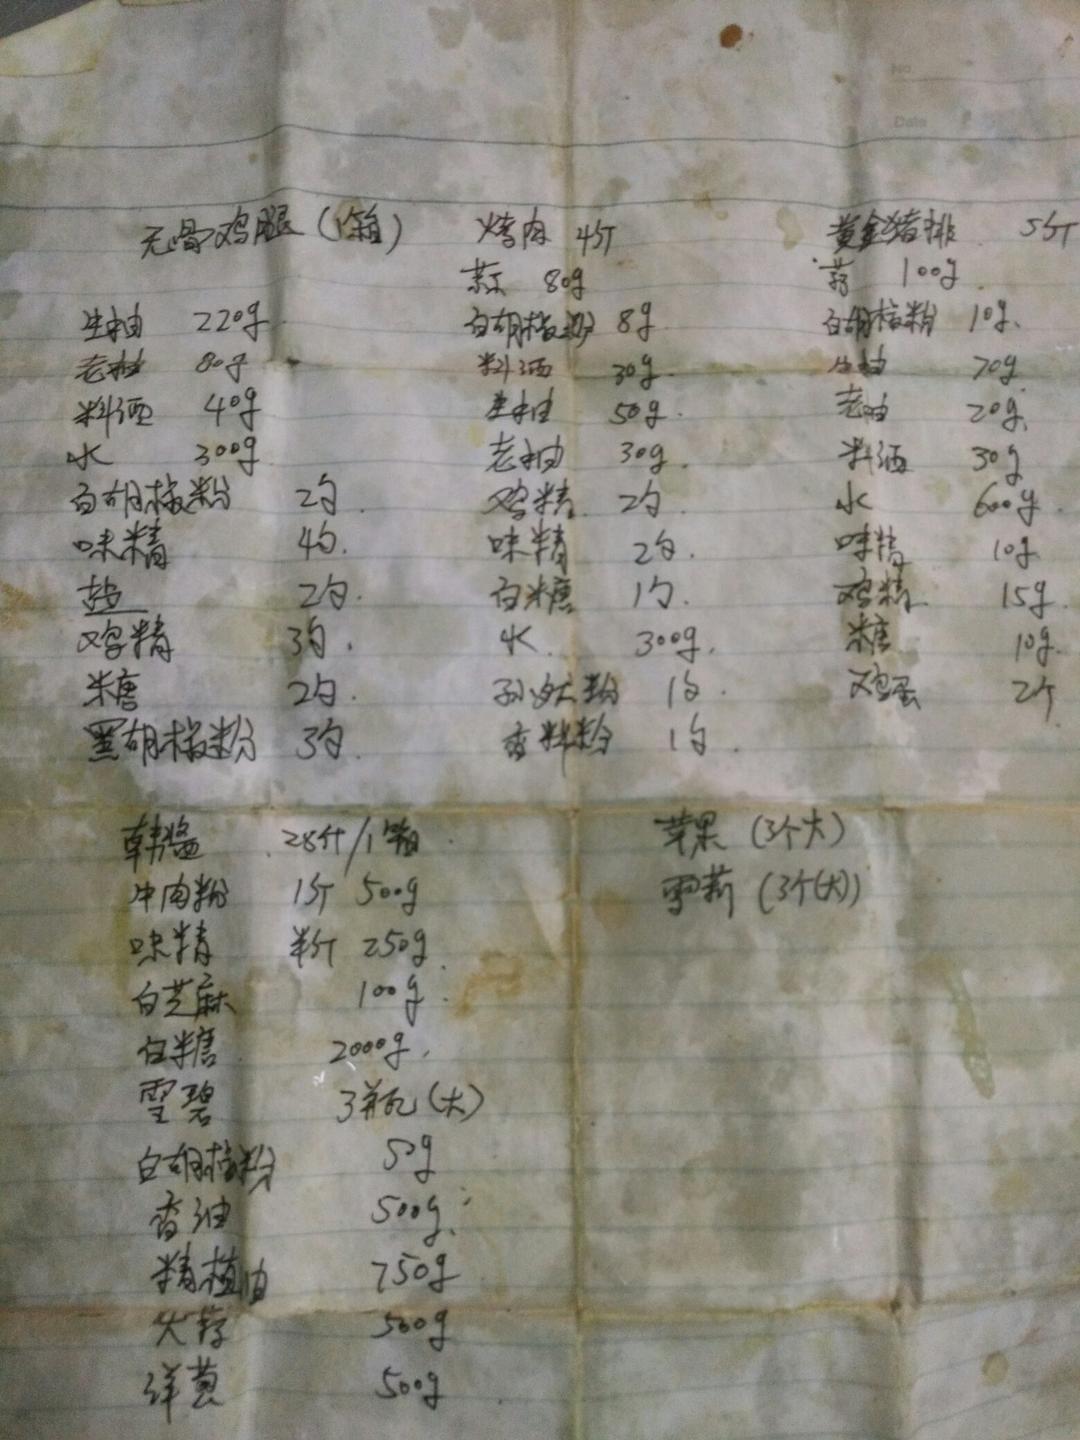 No.
Date
无骨鸡腿（1箱）
生抽 220g
老抽 80g
料酒 40g
水 300g
白胡椒粉 2勺
味精 4勺
盐 2勺
鸡精 3勺
糖 2勺
黑胡椒粉 3勺
烤肉 4斤
蒜 80g
白胡椒粉 8g
料酒 30g
生抽 50g
老抽 30g
鸡精 2勺
味精 2勺
白糖 1勺
水 300g
孜然粉 1勺
香料粉 1勺
黄金猪排 5斤
蒜 100g
白胡椒粉 10g
生抽 70g
老抽 20g
料酒 30g
水 600g
味精 10g
鸡精 15g
糖 10g
鸡蛋 2个
韩酱 28斤/1箱
牛肉粉 1斤 500g
味精 半斤 250g
白芝麻 100g
白糖 2000g
雪碧 3瓶（大）
白胡椒粉 50g
香油 500g
750g
大蒜 500g
洋葱 500g
苹果（3个大）
雪莉（3个(大)）